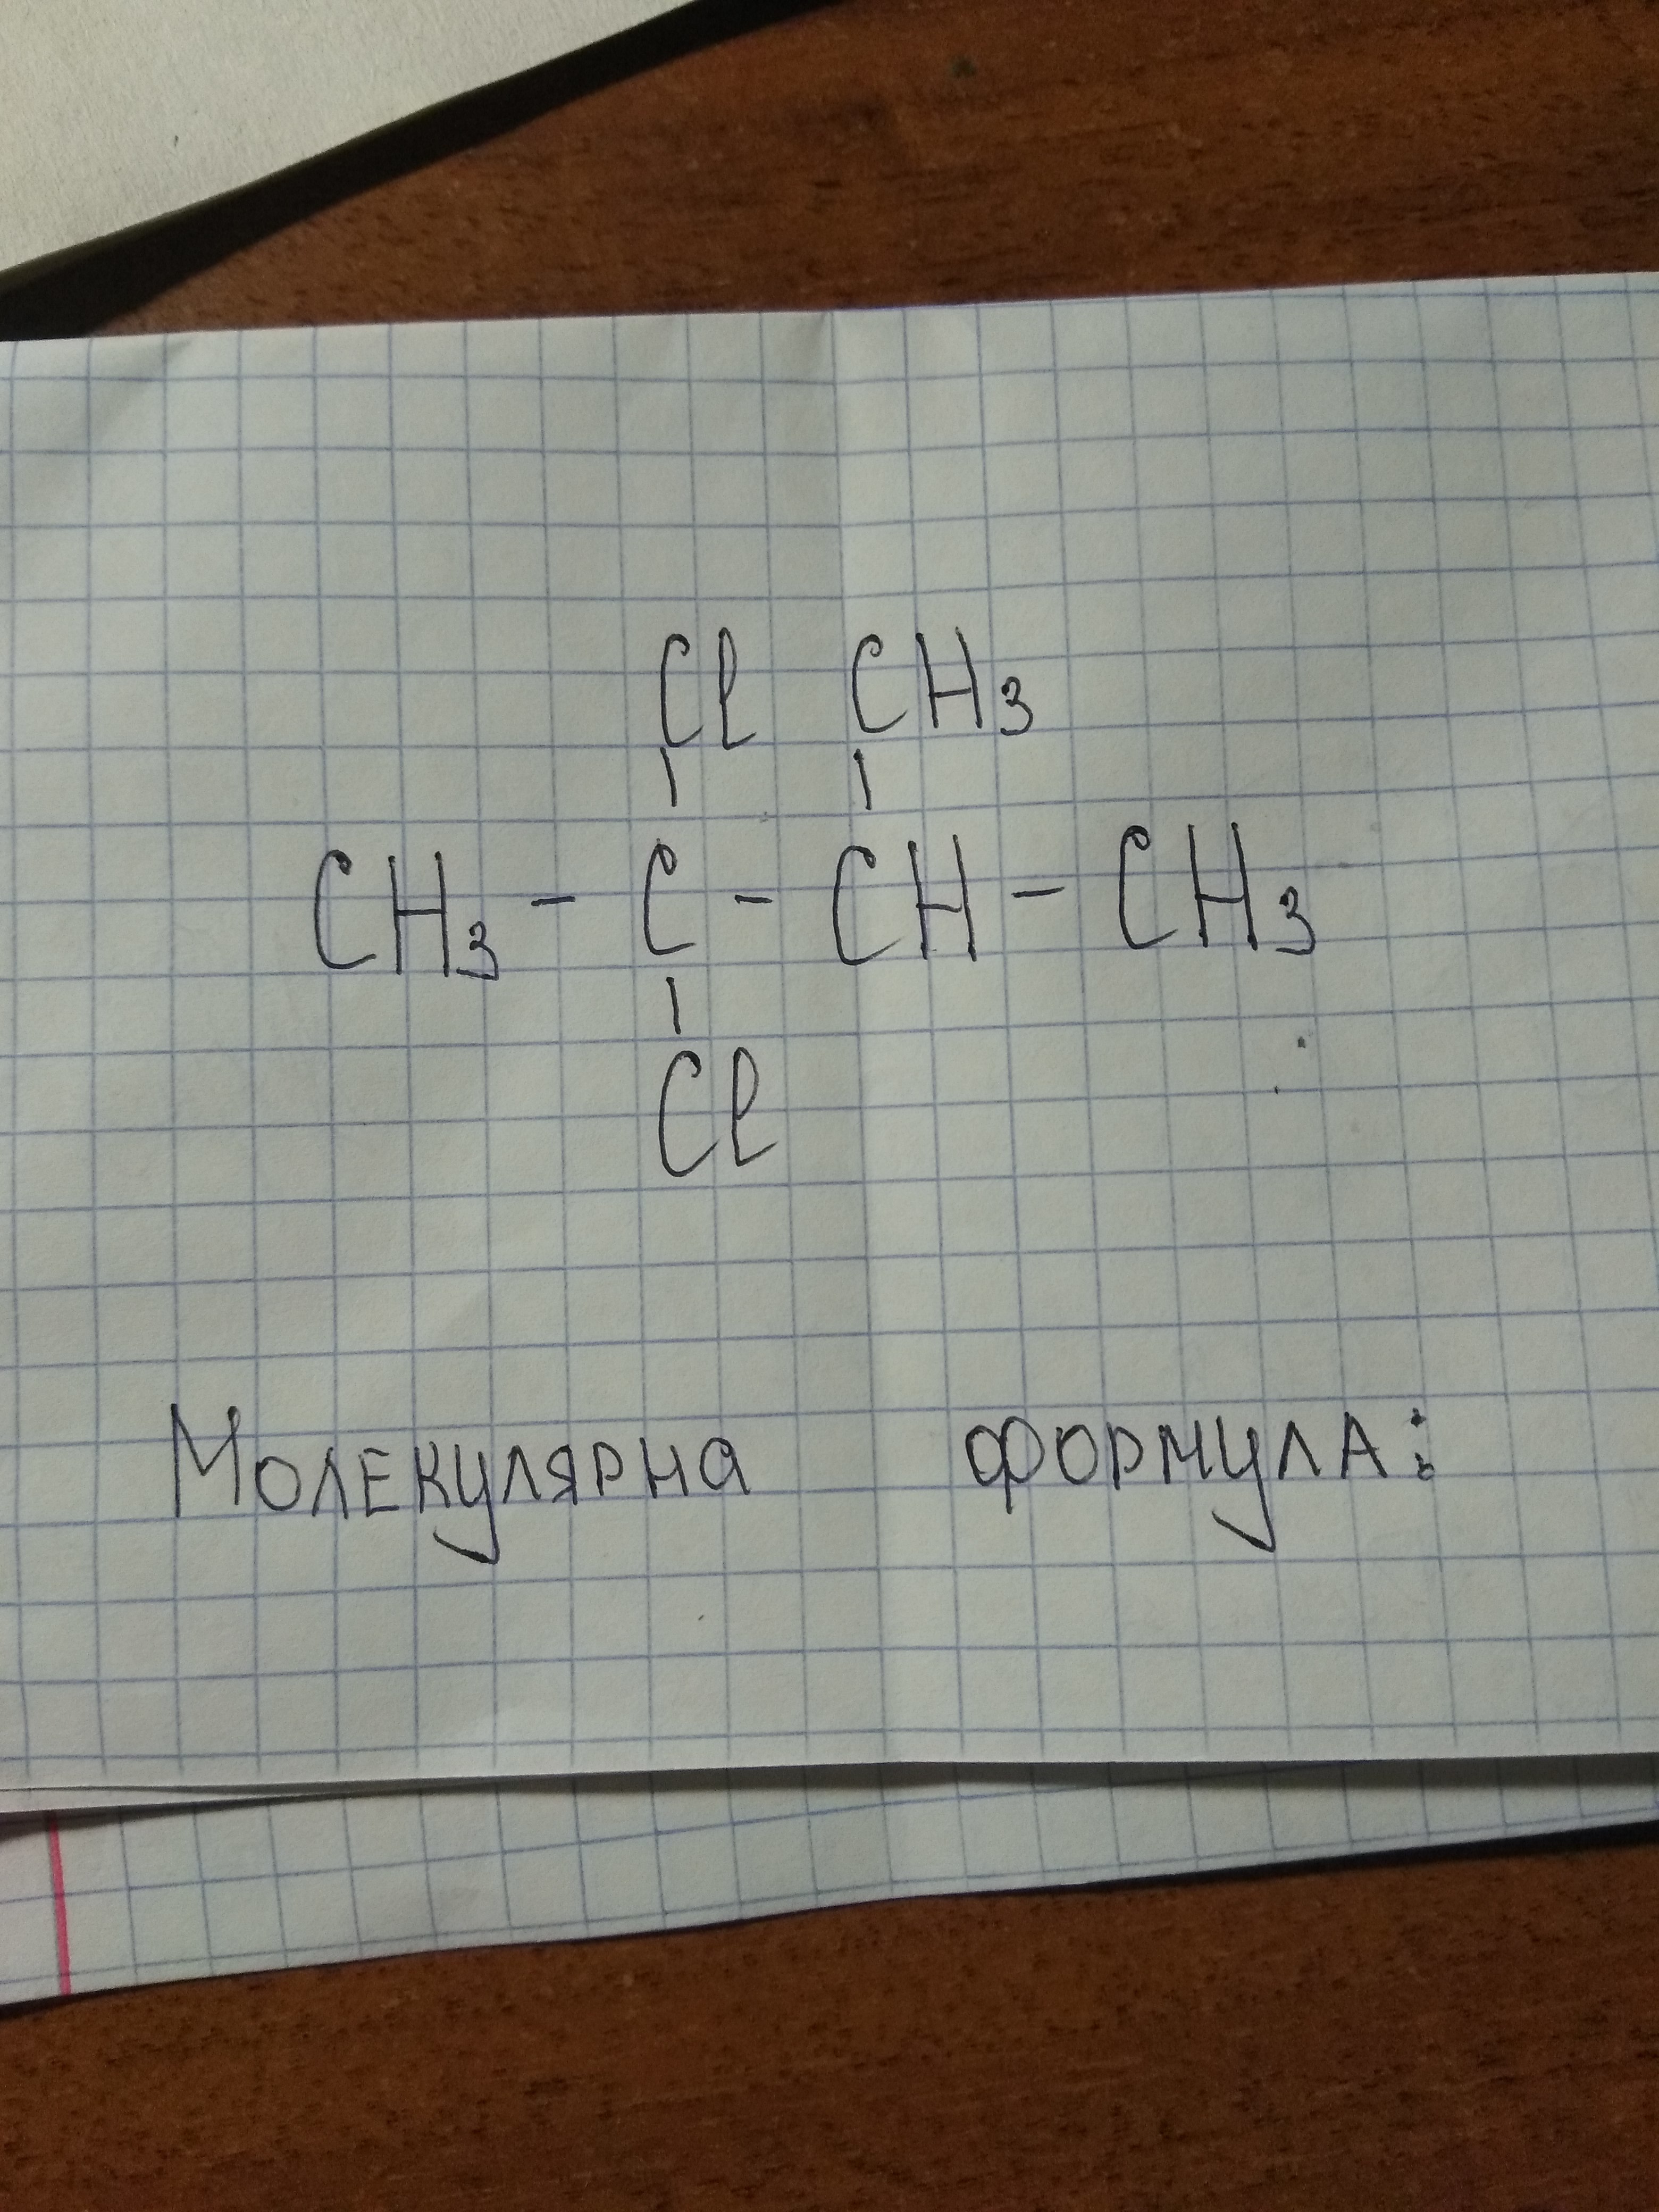 Cl CH3
CH3 - C - CH - CH3
Cl
Молекулярна формула: